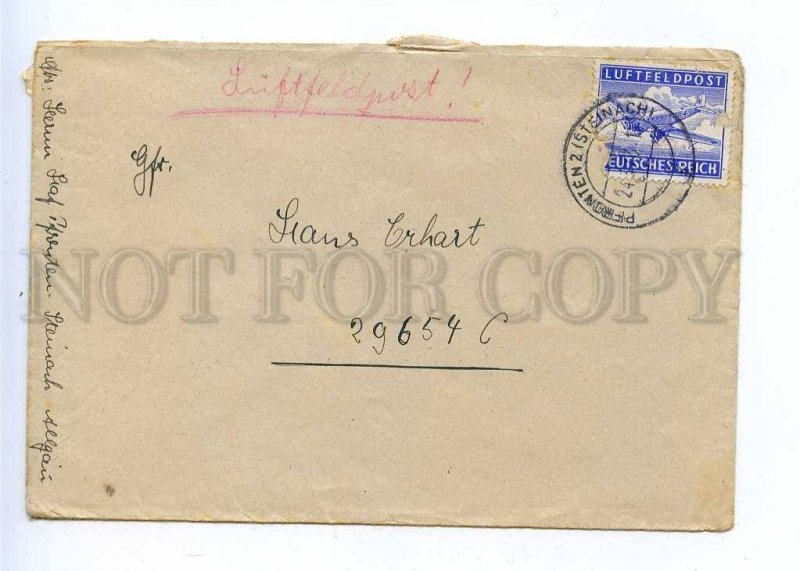 Luftfeldpost!
LUFTFELDPOST
DEUTSCHES REICH
PFRONTEN 2 (STEINACH)
24
Gfr.
Hans Erhart
29654 C
Abs: Graf Pfronten-Steinach Allgäu
NOT FOR COPY